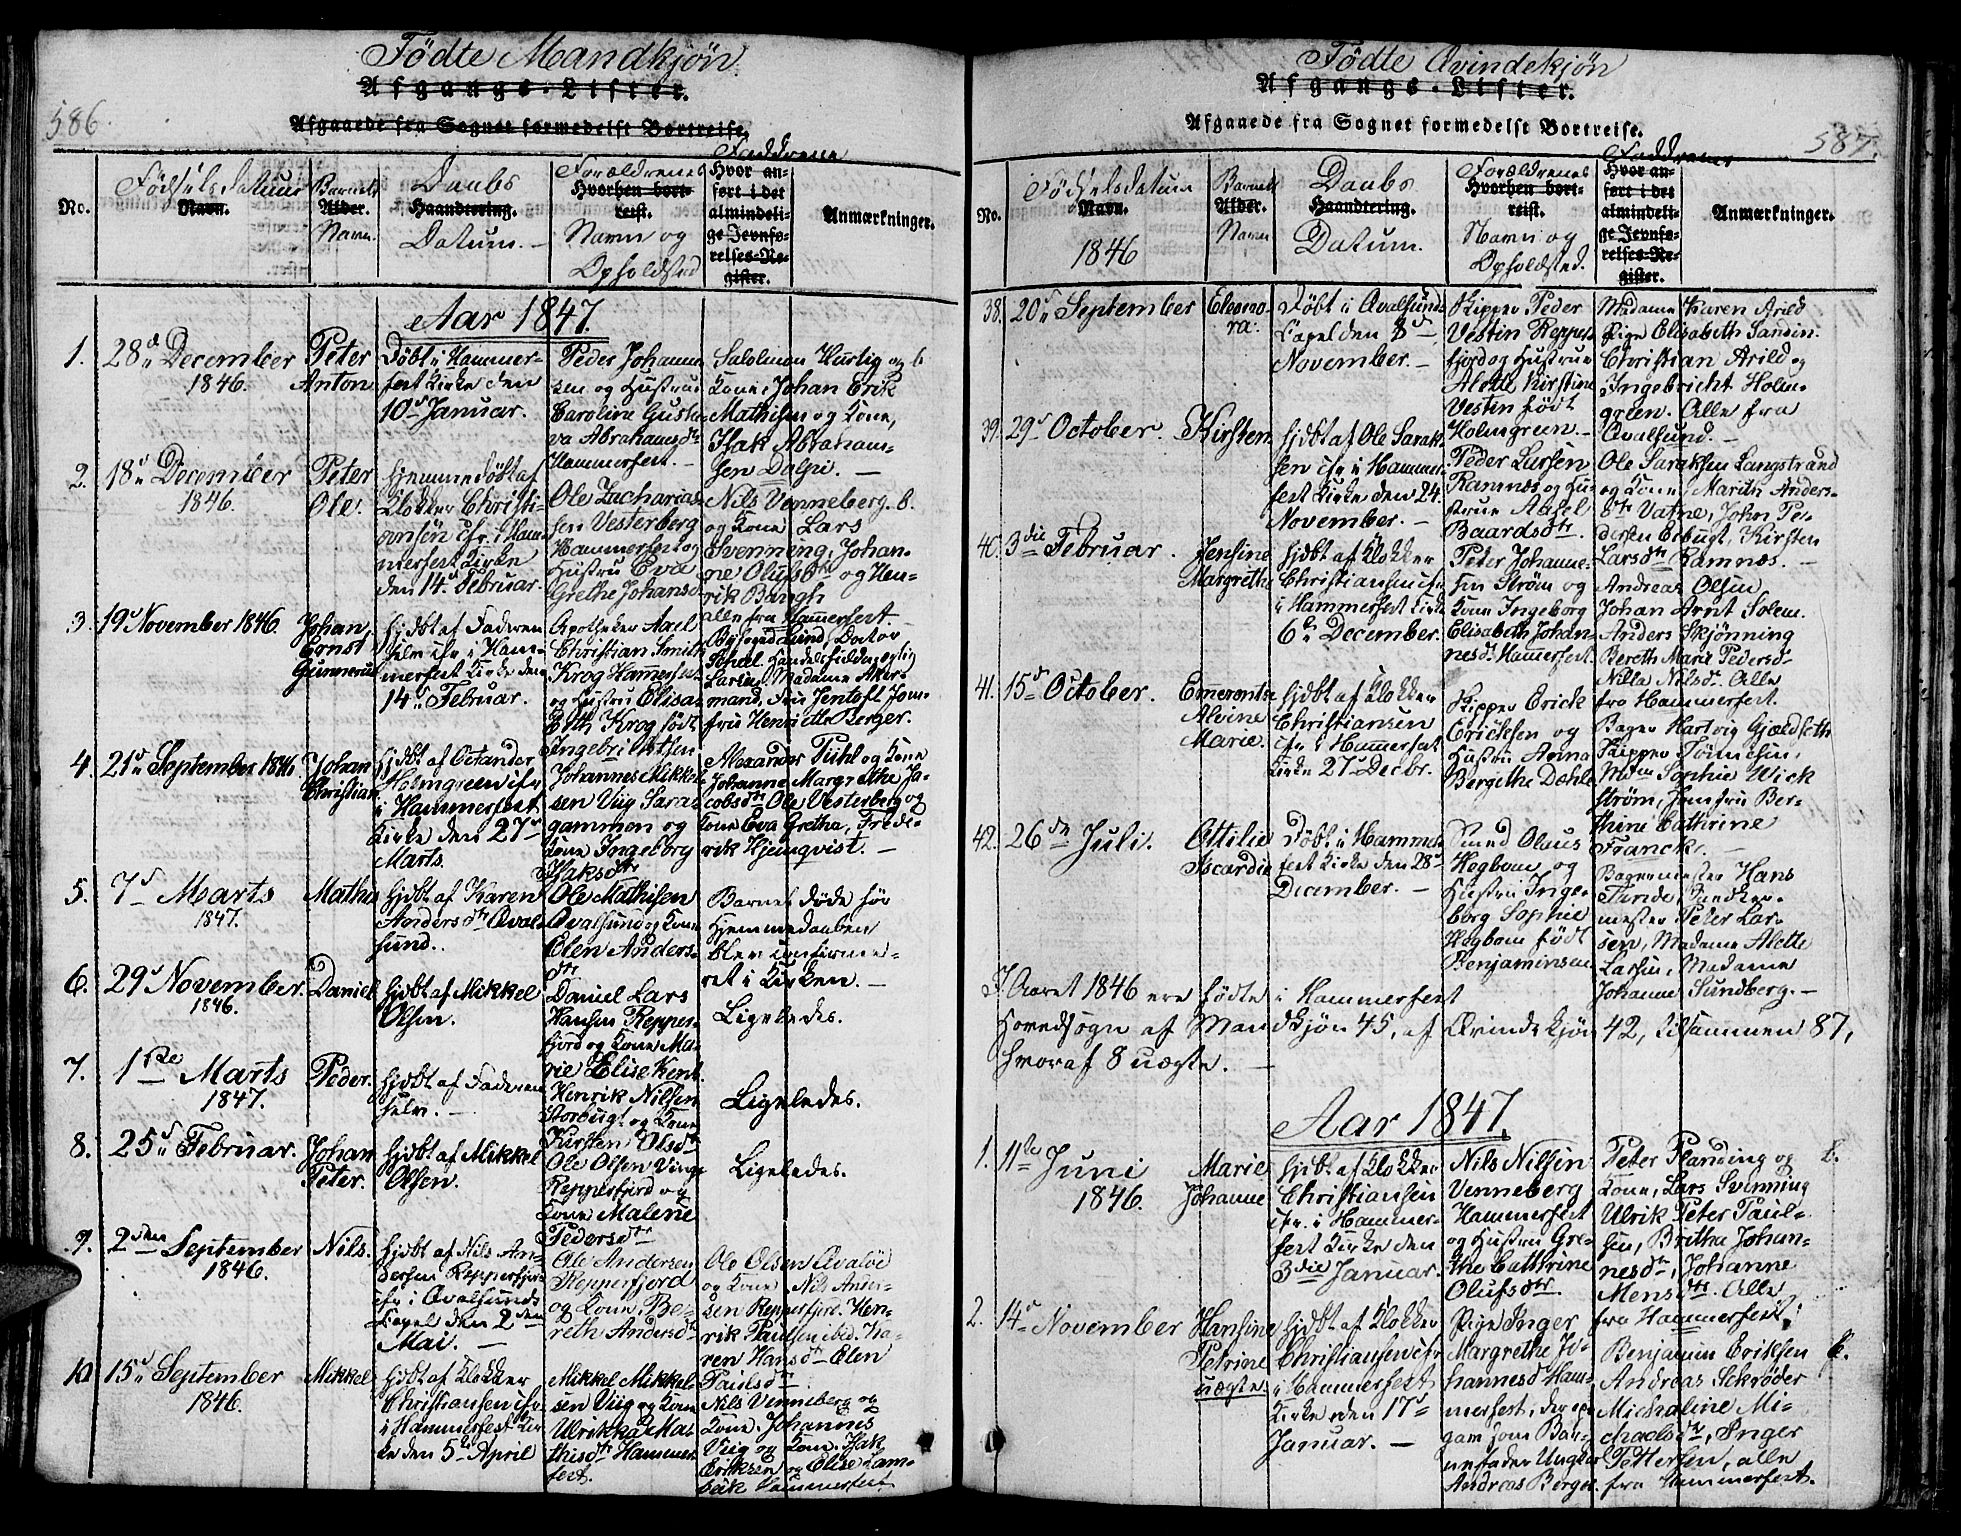 Fødte Mandkjøn.
Afgangs-Lister.
586.
Afgaaede fra Sognet formedelst Bortreise.
No.
Fødselsdatum
Navn.
Barnets
Alder.
Navn.
Daabs
Haandtering.
Datum.
Forældrenes
Hvorhen bort-
reist.
Navn og
Opholdsted
Faddrene
Hvor an-
ført i det
almindeli-
ge Jevnfø-
relses-Re-
gister.
Anmærkninger.
Aar 1847.
1.
28d December
1846.
Peter
Anton
Døbt i Hammer-
fest Kirke den
10d Januar.
Peder Johanne-
sen og Hustrue
Caroline Gusta-
va Abrahamsdtr
Hammerfest.
Salolmon Hurtig og
Kone, Johan Erik
Mathisen og Kone,
Isak Abraham-
sen Dalpi.
2.
18d December
1846.
Peter
Ole.
Hjemmedøbt af
Klokker Christi-
ansen cfr. i Ham-
merfest Kirke
den 14d Februar.
Ole Zacharias-
sen Vesterberg
Hammerfest og
Hustru Eva
Grethe Johansd
Nils Venneberg.
og Kone Lars
Svenning, Johan-
ne Olufsdtr og Hen-
rik Bangh
alle fra Hammerfest.
3.
19d November 1846.
Johan,
Ernst
Gunnerus
Hjdbt af Faderen
selv cfr i Ham-
merfest Kirke den
14d Februar.
Apotheker Axel
Christian Smith
Krog Hammerfest
og Hustru Elisa-
beth Krog født
Ingebrichtsen
Byfoged Lund, Doctor
Larsen, Madame Aker-
mand, Fru Jentoft Jom-
fru Henriette Berger.
4.
21d September 1846.
Johan
Christian
Hjdbt af Octander
Holmgreen cfr
i Hammerfest
Kirke den 27d
Marts.
Johannes Mikkel-
sen Viig Sara-
gammen og
Kone Ingeborg
Isaksdtr
Alexander Pihl og Kone
Johanne Margrethe Ja-
cobsdtr Ole Vesterberg og
Kone Eva Gretha, Frede-
rik Hjemqvist.
5.
7d Marts
1847.
Mathis
Hjdbt af Karen
Andersdtr Qval-
sund.
Ole Mathisen
Qvalsund og Kone
Elen Anders-
dtr
Barnet døde før
Hjemmedaaben
blev confirme-
ret i Kirken.
6.
29d November.
1846.
Daniel
Hjdbt af Mikkel
Olsen.
Daniel Lars
Hansen Repper-
fjord og Kone Ma-
rie Elise Kent.
Ligeledes.
7.
1ste Marts
1847.
Peder.
Hjdbt af Faderen
selv.
Henrik Nilsen
Storbugt og Kone
Kirsten Olsdtr
Ligeledes.
8.
25d Februar.
Johan
Peter.
Hjdbt af Mikkel
Olsen.
Ole Olsen Vinge
Repperfjord og
Kone Malene
Pedersdtr
Ligeledes.
9.
2den September
1846.
Nils.
Hjdbt af Nils An-
dersen Repperfjord
cfr i Qvalsunds
Capel den 2den
Mai.
Ole Andersen
Repperfjord
og Kone Be-
reth Andersdtr
Ole Olsen Qvaløe
og Kone Nils Ander-
sen Repperfjord. Hen-
rik Paulsen ibed. Ka-
ren Hansdtr Elen
Paulsdtr
10.
15d September
1846.
Mikkel
Hjdbt af Klokker
Christiansen cfr
i Hammerfest Kir-
ke den 5te April
Mikkel Mikkel-
sen Viig og Kone
Ulrikka Ma-
thisdtr Hammer-
fest.
Nils Venneberg og
Kone, Johannes
Viig og Kone. Isak
Eriksen og Elise Lam-
bek Hammerfest
Fødte Qvindekjøn
Afgangs-Lister.
Afgaaede fra Sognet formedelst Bortreise.
587.
No.
Fødselsdatum
Navn.
1846
Barnets
Alder.
Navn
Daabs
Haandtering.
Datum.
Forældrenes
Hvorhen bort-
reist.
Navn og
Opholdsted.
Faddrenes
Hvor an-
ført i det
almindeli-
ge Jevnfø-
relses-Re-
gister.
Anmærkninger.
38.
20d September
Eleono-
ra.
Døbt i Qvalsunds
Capel den 8d
November.
Skipper Peder
Vestin Repper-
fjord og Hustrue
Alette Kirstine
Vestin født
Holmgreen.
Madame Karen Arild
Pige Elisabeth Sandin.
Christian Arild og
Ingebricht Holm-
green. Alle fra
Qvalsund.
39.
29d October.
Kirsten
Hjdbt af Ole Sarak-
sen cfr i Hammer-
fest Kirke den 24.
November.
Peder Larsen
Ramnæs og Hu-
strue Aasel
Baardsdtr.
Ole Saraksen Langstrand
og Kone, Marith Anders-
dtr Vatne, John Pe-
dersen Erbugt, Kirsten
Larsdtr Ramnæs.
40.
3die Februar.
Jensine
Margrethe
Hjdbt af Klokker
Christiansen cfr
i Hammerfest Kirke
6te December.
Peder Johanne-
sen Strøm og
Kone Ingeborg
Elisabeth Johan-
nesdtr Hammerfest.
Andreas Olsen
Johan Arnt Solem.
Anders Skjønning
Bereth Marie Pedersdtr
Nilla Nilsdtr. Alle
fra Hammerfest.
41.
15d October.
Emerentse
Alvine
Marie.
Hjdbt af Klokker
Christiansen
cfr i Hammerfest
Kirke 27d Decbr.
Skipper Erick
Ericksen og
Hustru Anna
Bergethe Dæhle
Bager Hartvig Gjældseth
Skipper Tønnesen,
Mdm Sophie Wick
strøm, Jomfru Ber-
thine Cathrine
Franck.
42.
26de Juli.
Ottilie
Ascardie
Døbt i Hammer-
fest Kirke den 28d
December.
Smed Olaus
Hegbom og
Hustru Inge-
borg Sophie
Hegbom født
Benjaminsen
Bagermester Hans
Finde, Snedker-
mester Peter Lar-
sen, Madame Alette
Larsen, Madame
Johanne Sundberg.
I Aaret 1846 ere fødte i Hammerfest
Hovedsogn af Mandkjøn 45, af Qvindekjøn 42, tilsammen 87,
hvoraf 8 uægte.
Aar 1847.
1.
11te Juni
1846.
Marie
Johanne
Hjdbt af Klokker
Christiansen
cfr. i Hammer-
fest Kirke den
3die Januar.
Nils Nilsen
Venneberg
Hammerfest
og Hustru Gre-
the Cathrine
Olufsdtr.
Peter Planding og
Kone, Lars Svenning
Ulrik Peter Paul-
sen, Britha Johan-
nesdtr, Johanne
Mensdtr. Alle
fra Hammerfest.
2.
14d November
Hansine
Petrine
uægte.
Hjdbt af Klokker
Christiansen cfr
i Hammerfest
Kirke den 17d
Januar.
Pige Inger
Margrethe Jo-
hannesd Ham-
merfest, der opgav
som Bar-
nefader Ungkar
Andreas Berger.
Benjamin Eriksen
Andreas Schrøder
Michaline Mi-
chaelsdtr, Inger
Pettersen, alle
fra Hammerfest.